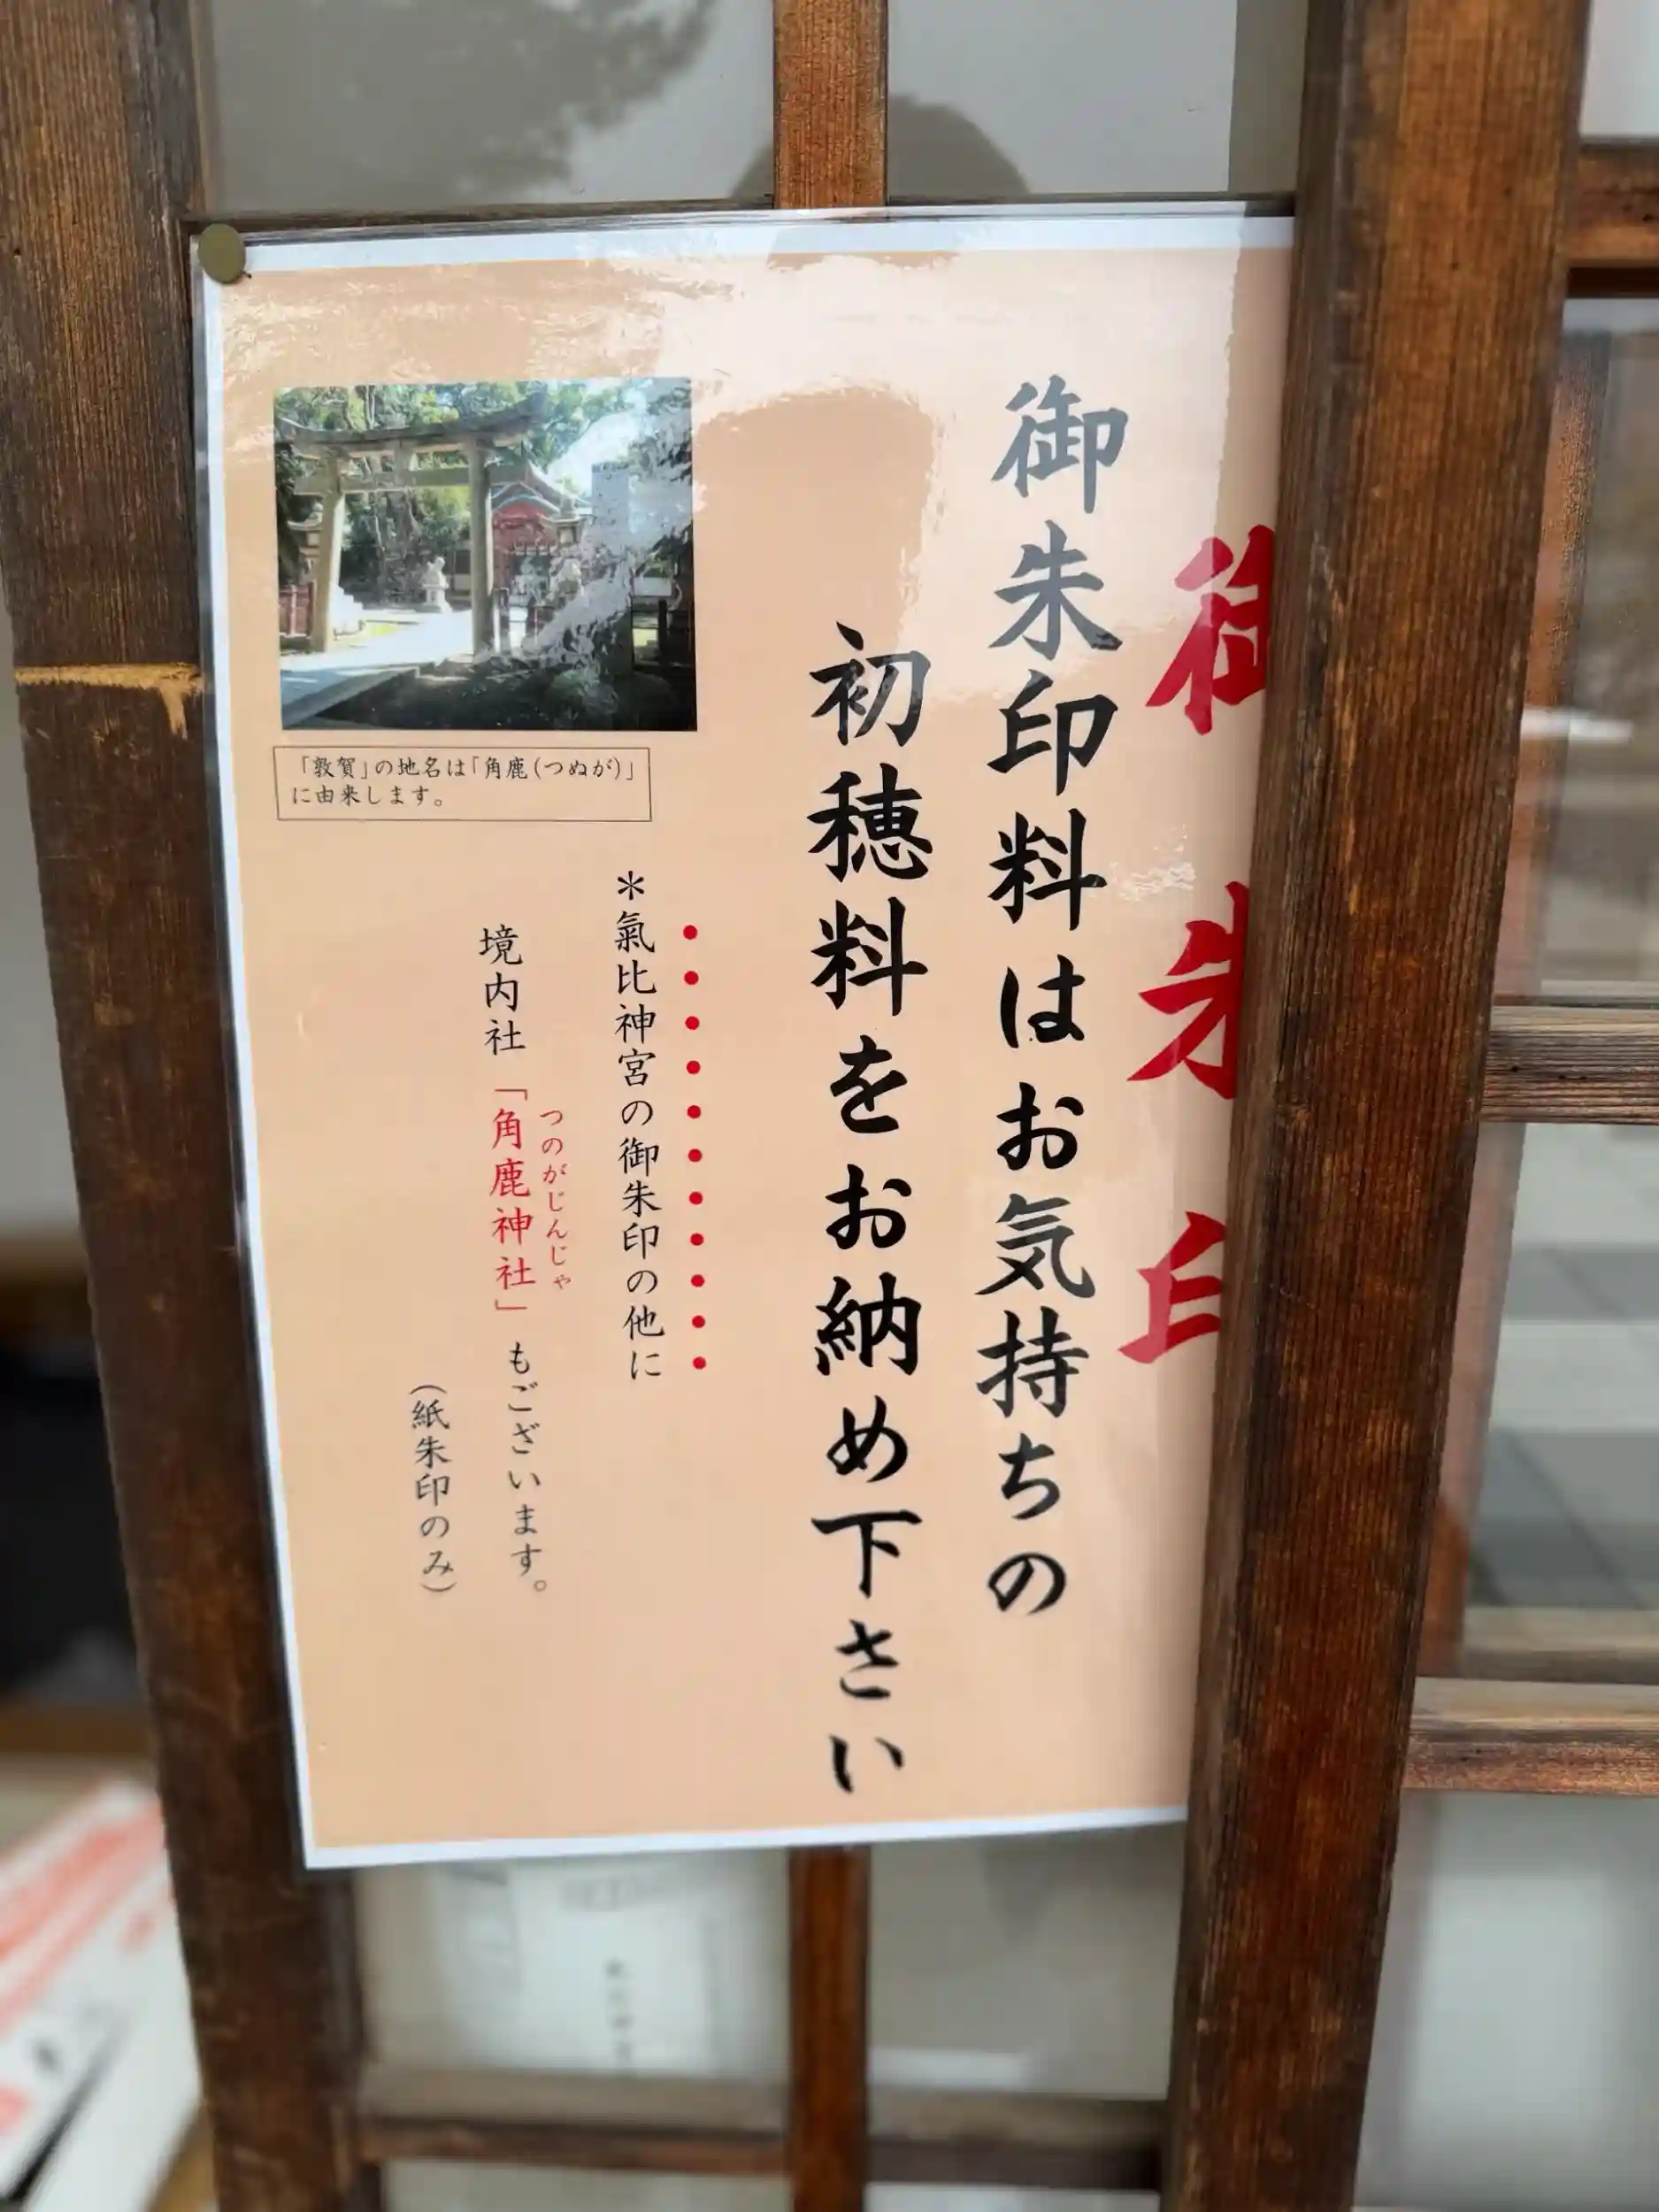 御朱印
御朱印料はお気持ちの
初穂料をお納め下さい
＊氣比神宮の御朱印の他に
境内社「角鹿神社」もございます。
つのがじんじゃ
（紙朱印のみ）
「敦賀」の地名は「角鹿(つぬが)」
に由来します。